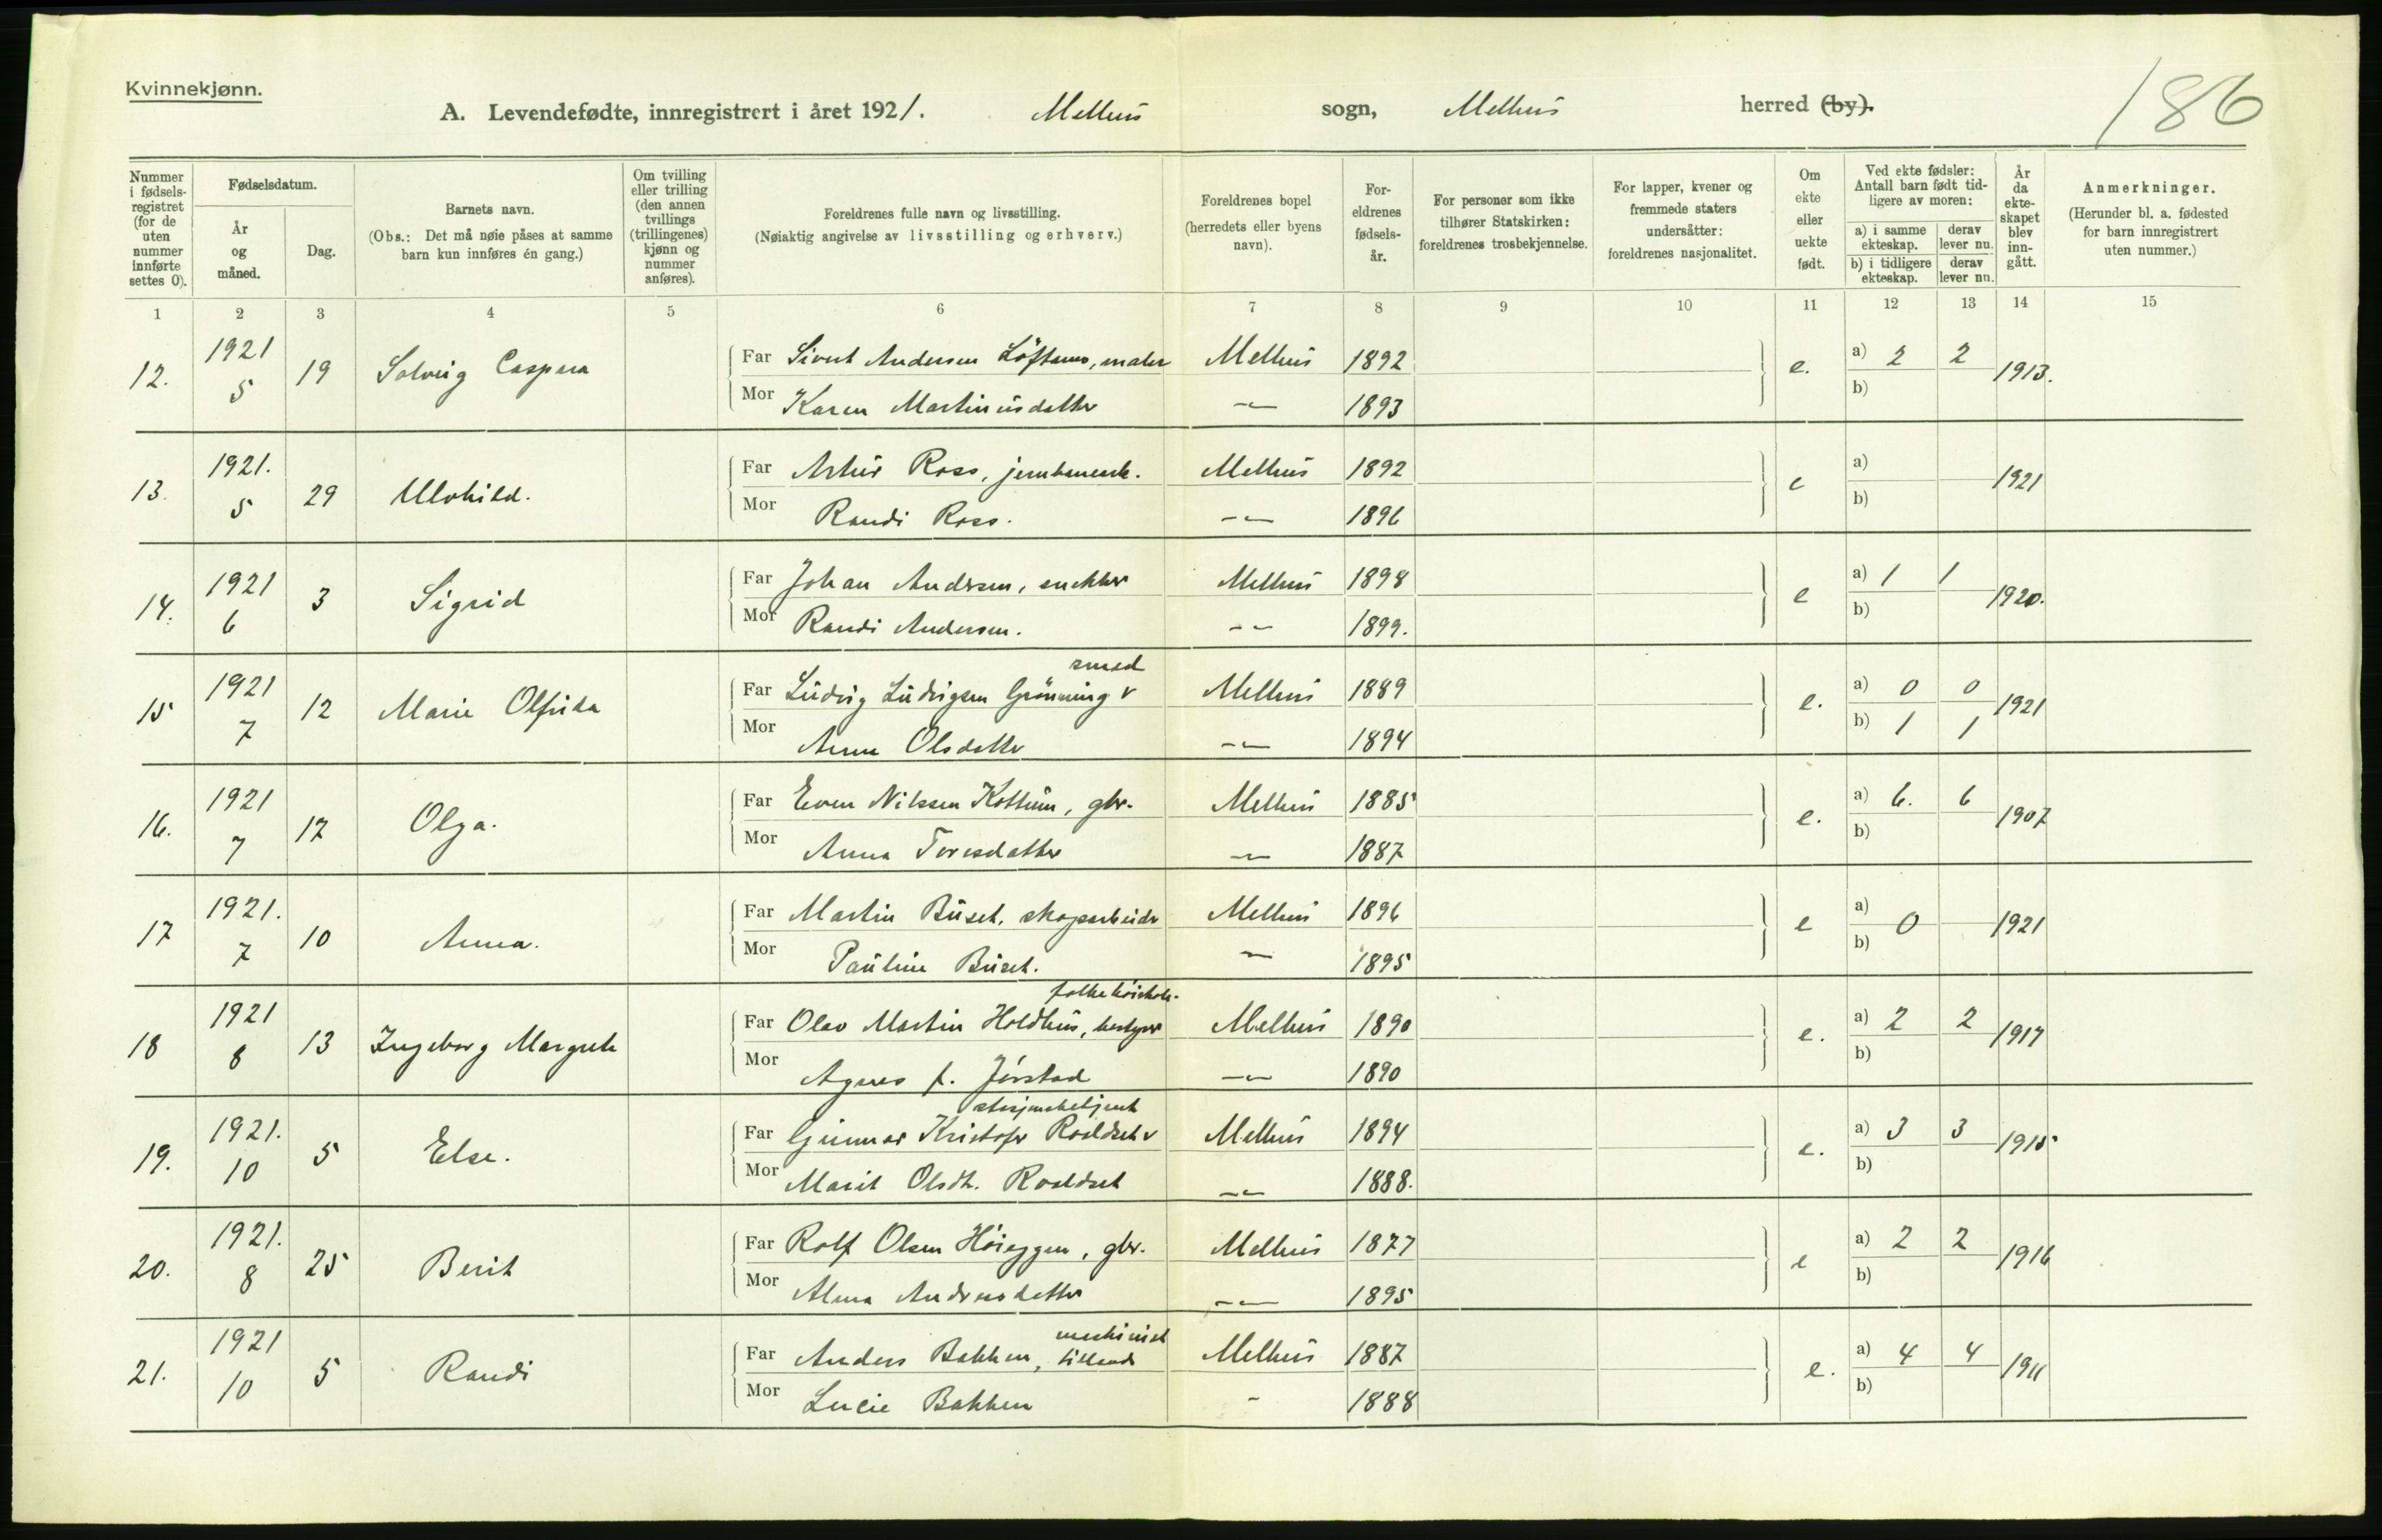 Kvinnekjønn.
A. Levendefødte, innregistrert i året 1921. Melhus sogn, Melhus herred (by).
186
Nummer i fødselsregistret (for de uten nummer innførte settes 0).
Fødselsdatum.
År og måned.
Dag.
Barnets navn.
(Obs.: Det må nøie påses at samme barn kun innføres én gang.)
Om tvilling eller trilling (den annen tvillings (trillingenes) kjønn og nummer anføres).
Foreldrenes fulle navn og livsstilling.
(Nøiaktig angivelse av livsstilling og erhverv.)
Foreldrenes bopel (herredets eller byens navn).
Foreldrenes fødselsår.
For personer som ikke tilhører Statskirken: foreldrenes trosbekjennelse.
For lapper, kvener og fremmede staters undersåtter: foreldrenes nasjonalitet.
Om ekte eller uekte født.
Ved ekte fødsler: Antall barn født tidligere av moren:
a) i samme ekteskap. derav lever nu.
b) i tidligere ekteskap. derav lever nu.
År da ekteskapet blev inngått.
Anmerkninger.
(Herunder bl. a. fødested for barn innregistrert uten nummer.)
1 2 3 4 5 6 7 8 9 10 11 12 13 14 15
12. 1921 5 19 Solveig Caspara
Far Sivert Andersen, maler Melhus 1892 e. a) 2 2 1913.
Mor Karen Martinusdatter -"- 1893 b)
13. 1921. 5 29 Ulvhild.
Far Artur Ross, Melhus 1892 e a) 1921
Mor Randi Ross. -"- 1896 b)
14. 1921 6 3 Sigrid
Far Johan Andersen, snekker Melhus 1898 e a) 1 1 1920.
Mor Randi Andersen. -"- 1899. b)
15 1921 7 12 Marie Olfrida
smed
Far Ludvig Ludvigsen Grönning v Melhus 1889 e. a) 0 0 1921
Mor Anne Olsdatter -"- 1894 b) 1 1
16. 1921 7 17 Olga.
Far Even Nilssen Kottum, gbr. Melhus 1885 e. a) 6. 6 1907
Mor Anna Toresdatter -"- 1887 b)
17 1921. 7 10 Anna.
Far Martin Buset, skogarbeider Melhus 1896 e a) 0 1921
Mor Pauline Buset. -"- 1895 b)
18 1921 8 13 Ingeborg Margrete
folkehöiskole-
Far Olav Martin Holdhus, bestyrer Melhus 1890 e. a) 2 2 1917
Mor Agnes f. Jörstad -"- 1890 b)
19. 1921. 10 5 Else.
stasjonsbetjent
Far Gunnar Kristofer Roaldset v Melhus 1894 e. a) 3 3 1915
Mor Marit Olsdt. Roaldset -"- 1888. b)
20. 1921. 8 25 Berit
Far Rolf Olsen Höieggen, gbr. Melhus 1877 e a) 2 2 1916
Mor Alma Andreasdatter -"- 1895 b)
21. 1921 10 5 Randi
maskinist
Far Anders Bakken, tillands Melhus 1887 e. a) 4 4 1911
Mor Lucie Bakken - 1888 b)